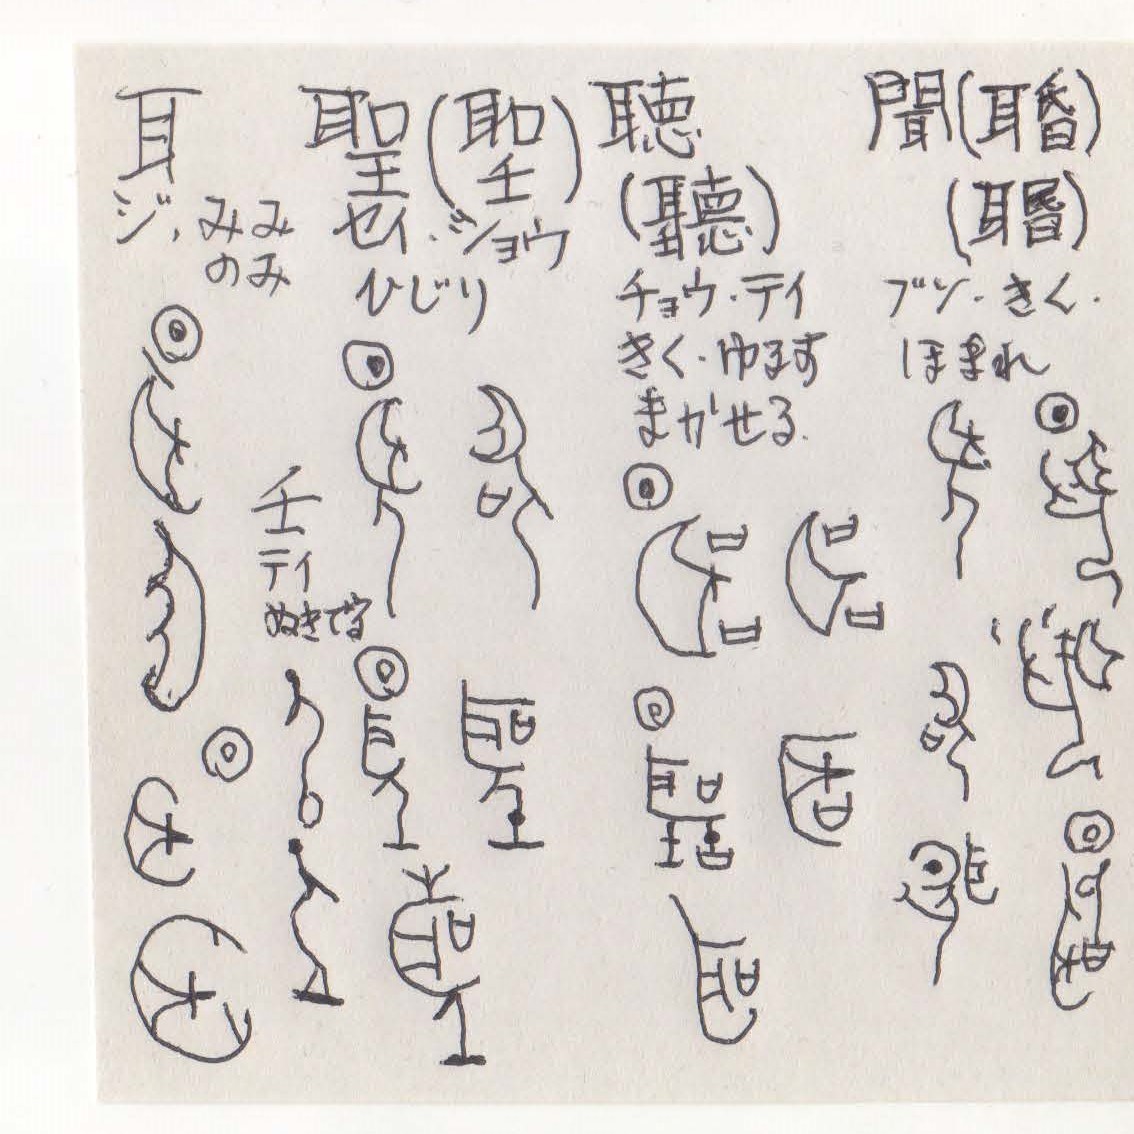 耳
ジ、みみ
のみ
聖(聖)
セイ・ジョウ
ひじり
壬
テイ
ぬきでる
聴
(聽)
チョウ・テイ
きく・ゆるす
まかせる.
聞(䎽)
ブン・きく・
ほまれ